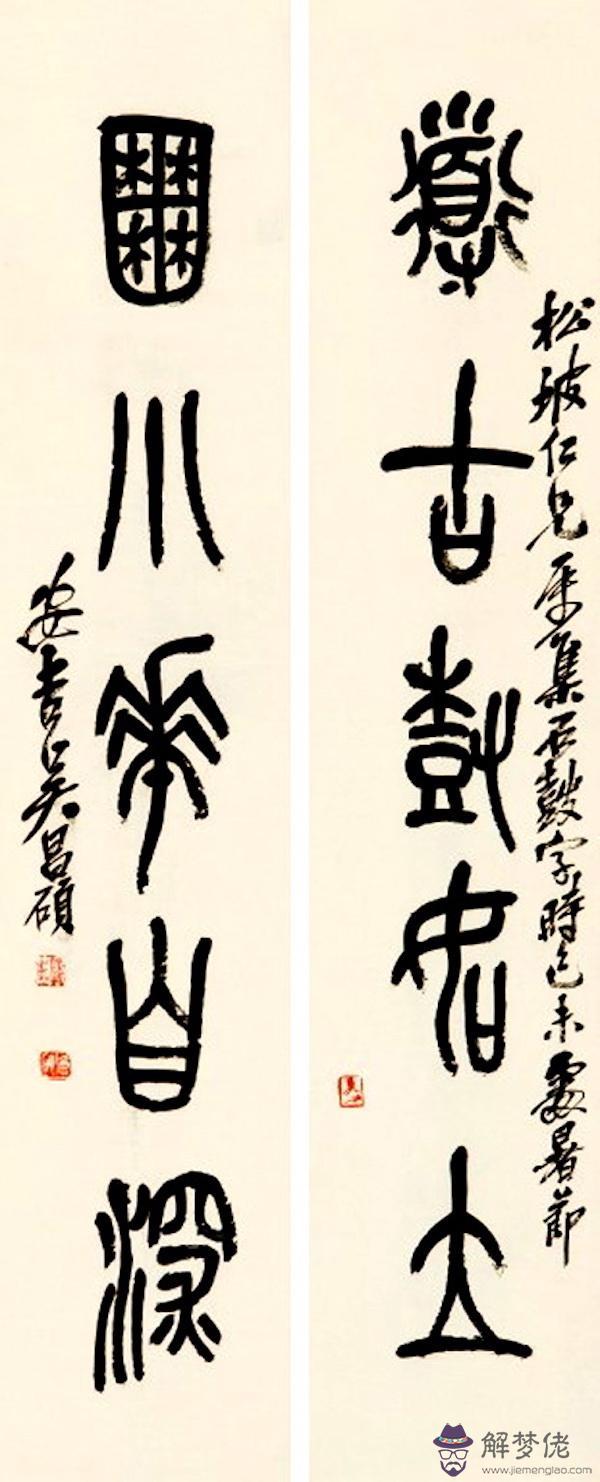 松坡仁兄屬集石鼓字時己未處暑節
道古尌如立
囿小華自深
安吉吳昌碩
解梦佬
www.jiemenglao.com